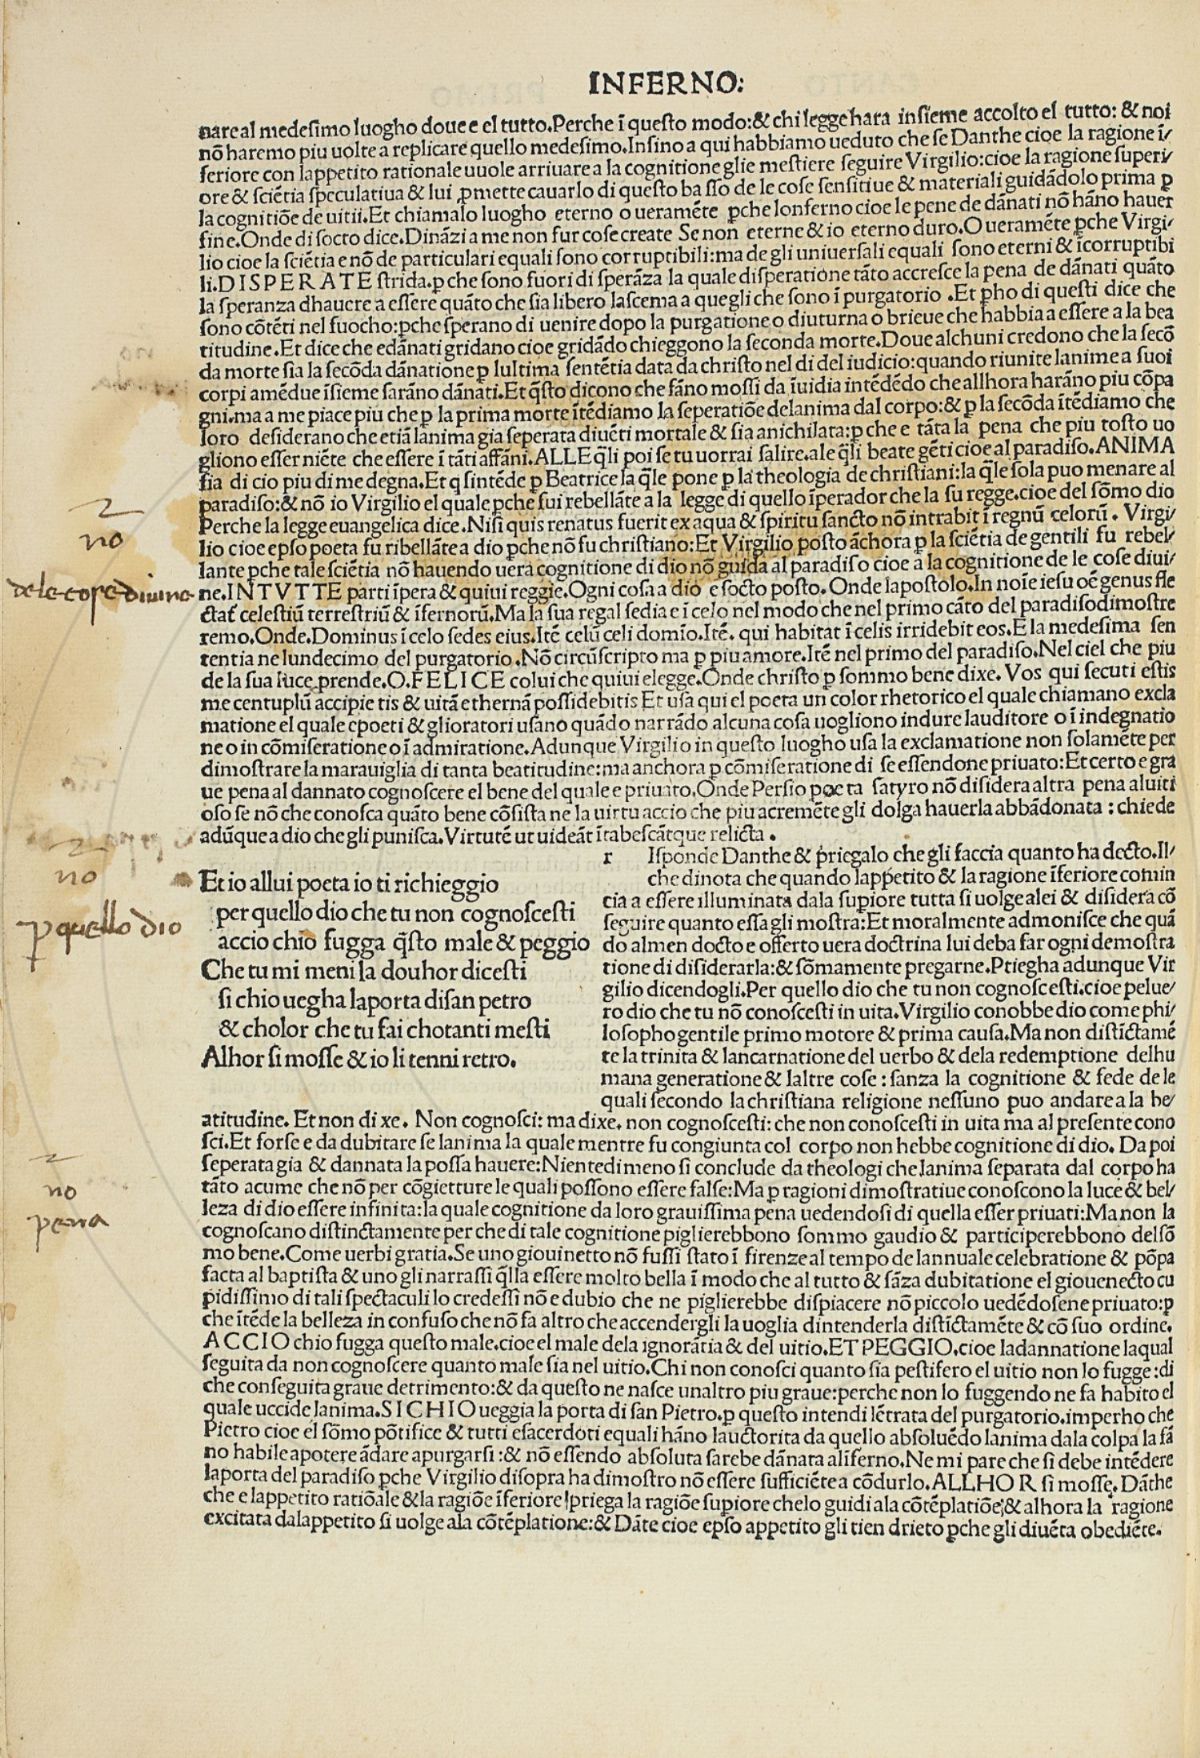 INFERNO:
nare al medesimo luogho doue e el tutto.Perche ĩ questo modo:& chi legge hara insieme accolto el tutto: & noi
nõ haremo piu uolte a replicare quello medesimo.Insino a qui habbiamo ueduto che se Danthe cioe la ragione ĩ/
feriore con lappetito rationale uuole arriuare a la cognitione glie mestiere seguire Virgilio:cioe la ragione superi/
ore & sciẽtia speculatiua & lui ꝓmette cauarlo di questo basso de le cose sensitiue & materiali guidãdolo prima ꝑ
la cognitiõe de uitii.Et chiamalo luogho eterno o ueramẽte ꝑche lonferno cioe le pene de dãnati nõ hãno hauer
fine.Onde di socto dice.Dinãzi a me non fur cose create Se non eterne & io eterno duro.O ueramẽte ꝑche Virgi/
lio cioe la sciẽtia e nõ de particulari equali sono corruptibili:ma de gli uniuersali equali sono eterni & ĩcorruptibi
li.DISPERATE strida.ꝑche sono fuori di sperãza la quale disperatione tãto accresce la pena de dãnati quãto
la speranza dhauere a essere quãto che sia libero la scema a quegli che sono ĩ purgatorio .Et ꝑho di questi dice che
sono cõtẽti nel fuocho:ꝑche sperano di uenire dopo la purgatione o diuturna o brieue che habbia a essere a la bea
titudine.Et dice che edãnati gridano cioe gridãdo chieggono la seconda morte.Doue alchuni credono che la secõ
da morte sia la secõda dãnatione ꝑ lultima sentẽtia data da christo nel di del iudicio:quando riunite lanime a suoi
corpi amẽdue ĩsieme sarãno dãnati.Et q̃sto dicono che fãno mossi da ĩuidia intẽdẽdo che allhora harãno piu cõpa
gni.ma a me piace piu che ꝑ la prima morte ĩtẽdiamo la seperatiõe delanima dal corpo:& ꝑ la secõda ĩtẽdiamo che
loro desiderano che etiã lanima gia seperata diuẽti mortale & sia anichilata:ꝑche e tãta la pena che piu tosto uo
gliono esser niẽte che essere ĩ tãti affãni.ALLE q̃li poi se tu uorrai salire.ale q̃li beate gẽti cioe al paradiso.ANIMA
fia di cio piu di me degna.Et q sintẽde ꝑ Beatrice la q̃le pone ꝑ la theologia de christiani:la q̃le sola puo menare al
paradiso:& nõ io Virgilio el quale ꝑche fui rebellãte a la legge di quello ĩperador che la su regge.cioe del sõmo dio
Perche la legge euangelica dice.Nisi quis renatus fuerit ex aqua & spiritu sancto nõ intrabit ĩ regnũ celorũ . Virgi/
lio cioe epso poeta fu ribellãte a dio ꝑche nõ fu christiano: Et Virgilio posto ãchora ꝑ la sciẽtia de gentili fu rebel/
lante ꝑche tale sciẽtia nõ hauendo uera cognitione di dio nõ guida al paradiso cioe a la cognitione de le cose diui/
ne.INTVTTE parti ĩpera & quiui reggie.Ogni cosa a dio e socto posto. Onde lapostolo.In noĩe iesu oẽ genus fle
ctat̃ celestiũ terrestriũ & ĩfernorũ. Ma la sua regal sedia e ĩ celo nel modo che nel primo cãto del paradisodimostre
remo.Onde.Dominus ĩ celo sedes eius.Itẽ celũ celi domĩo.Itẽ. qui habitat ĩ celis irridebit eos.E la medesima sen
tentia ne lundecimo del purgatorio .Nõ circũscripto ma ꝑ piu amore.Itẽ nel primo del paradiso.Nel ciel che piu
de la sua luce prende.O.FELICE colui che quiui elegge.Onde christo ꝑ sommo bene dixe. Vos qui secuti estis
me centuplũ accipie tis & uitã ethernã possidebitis Et usa qui el poeta un color rhetorico el quale chiamano excla
matione el quale epoeti & glioratori usano quãdo narrãdo alcuna cosa uogliono indure lauditore o ĩ indegnatio
ne o in cõmiseratione o ĩ admiratione.Adunque Virgilio in questo luogho usa la exclamatione non solamẽte per
dimostrare la marauiglia di tanta beatitudine:ma anchora ꝑ cõmiseratione di se essendone priuato: Et certo e gra
ue pena al dannato cognoscere el bene del quale e priuato.Onde Persio poeta satyro nõ disidera altra pena aluiti
oso se nõ che conosca quãto bene cõsista ne la uirtu accio che piu acremẽte gli dolga hauerla abbãdonata : chiede
adũque a dio che gli punisca.Virtutẽ ut uideãt ĩtabescãtque relicta .
Et io allui poeta io ti richieggio
per quello dio che tu non cognoscesti
accio chio fugga q̃sto male & peggio
Che tu mi meni la douhor dicesti
si chio uegha laporta disan petro
& cholor che tu fai chotanti mesti
Alhor si mosse & io li tenni retro.
r Isponde Danthe & priegalo che gli faccia quanto ha decto.Il/
che dinota che quando lappetito & la ragione ĩferiore comin
cia a essere illuminata dala suꝑiore tutta si uolge alei & disidera cõ
seguire quanto essa gli mostra:Et moralmente admonisce che quã
do almen docto e offerto uera doctrina lui deba far ogni demostra
tione di disiderarla:& sõmamente pregarne.Ptiegha adunque Vir
gilio dicendogli.Per quello dio che tu non cognoscesti.cioe pelue/
ro dio che tu nõ conoscesti in uita. Virgilio conobbe dio come phi/
losopho gentile primo motore & prima causa. Ma non distĩctamẽ
te la trinita & lancarnatione del uerbo & dela redemptione delhu
mana generatione & laltre cose : sanza la cognitione & fede de le
quali secondo la christiana religione nessuno puo andare a la be/
atitudine. Et non di xe. Non cognosci: ma dixe. non cognoscesti: che non conoscesti in uita ma al presente cono
sci.Et forse e da dubitare se lanima la quale mentre fu congiunta col corpo non hebbe cognitione di dio. Da poi
seperata gia & dannata la possa hauere:Nientedimeno si conclude da theologi che lanima separata dal corpo ha
tãto acume che nõ per cõgietture le quali possono essere false: Ma ꝑ ragioni dimostratiue conoscono la luce & bel/
leza di dio essere infinita:la quale cognitione da loro grauissima pena uedendosi di quella esser priuati: Ma non la
cognoscano distinctamente per che di tale cognitione piglierebbono sommo gaudio & participerebbono delsõ
mo bene.Come uerbi gratia.Se uno giouinetto nõ fussi stato ĩ firenze al tempo de lannuale celebratione & põpa
facta al baptista & uno gli narrassi q̃lla essere molto bella ĩ modo che al tutto & sãza dubitatione el giouenecto cu
pidissimo di tali spectaculi lo credessi nõ e dubio che ne piglierebbe dispiacere nõ piccolo uedẽdosene priuato:ꝑ
che itẽde la belleza in confuso che nõ fa altro che accendergli la uoglia dintenderla distĩctamẽte & cõ suo ordine.
ACCIO chio fugga questo male.cioe el male dela ignorãtia & del uitio. ET PEGGIO.cioe ladannatione laqual
seguita da non cognoscere quanto male sia nel uitio.Chi non conosci quanto sia pestifero el uitio non lo fugge:di
che conseguita graue detrimento:& da questo ne nasce unaltro piu graue:perche non lo fuggendo ne fa habito el
quale uccide lanima.SICHIO ueggia la porta di san Pietro.ꝑ questo intendi lẽtrata del purgatorio.imperho che
Pietro cioe el sõmo põtifice & tutti esacerdoti equali hãno lauctorita da quello absoluẽdo lanima dala colpa la fã
no habile a potere ãdare a purgarsi :& nõ essendo absoluta sarebe dãnata alĩferno. Ne mi pare che si debe intẽdere
laporta del paradiso ꝑche Virgilio disopra ha dimostro nõ essere sufficiẽte a cõdurlo. ALLHOR si mosse. Dãthe
che e lappetito ratiõale & la ragiõe ĩferiore priega la ragiõe suꝑiore chelo guidi ala cõtẽplatiõe;& alhora la ragione
excitata dalappetito si uolge ala cõtẽplatione:& Dãte cioe epso appetito gli tien drieto ꝑche gli diuẽta obediẽte.
no
dele cose divine
no
ꝑ quello dio
no
pena